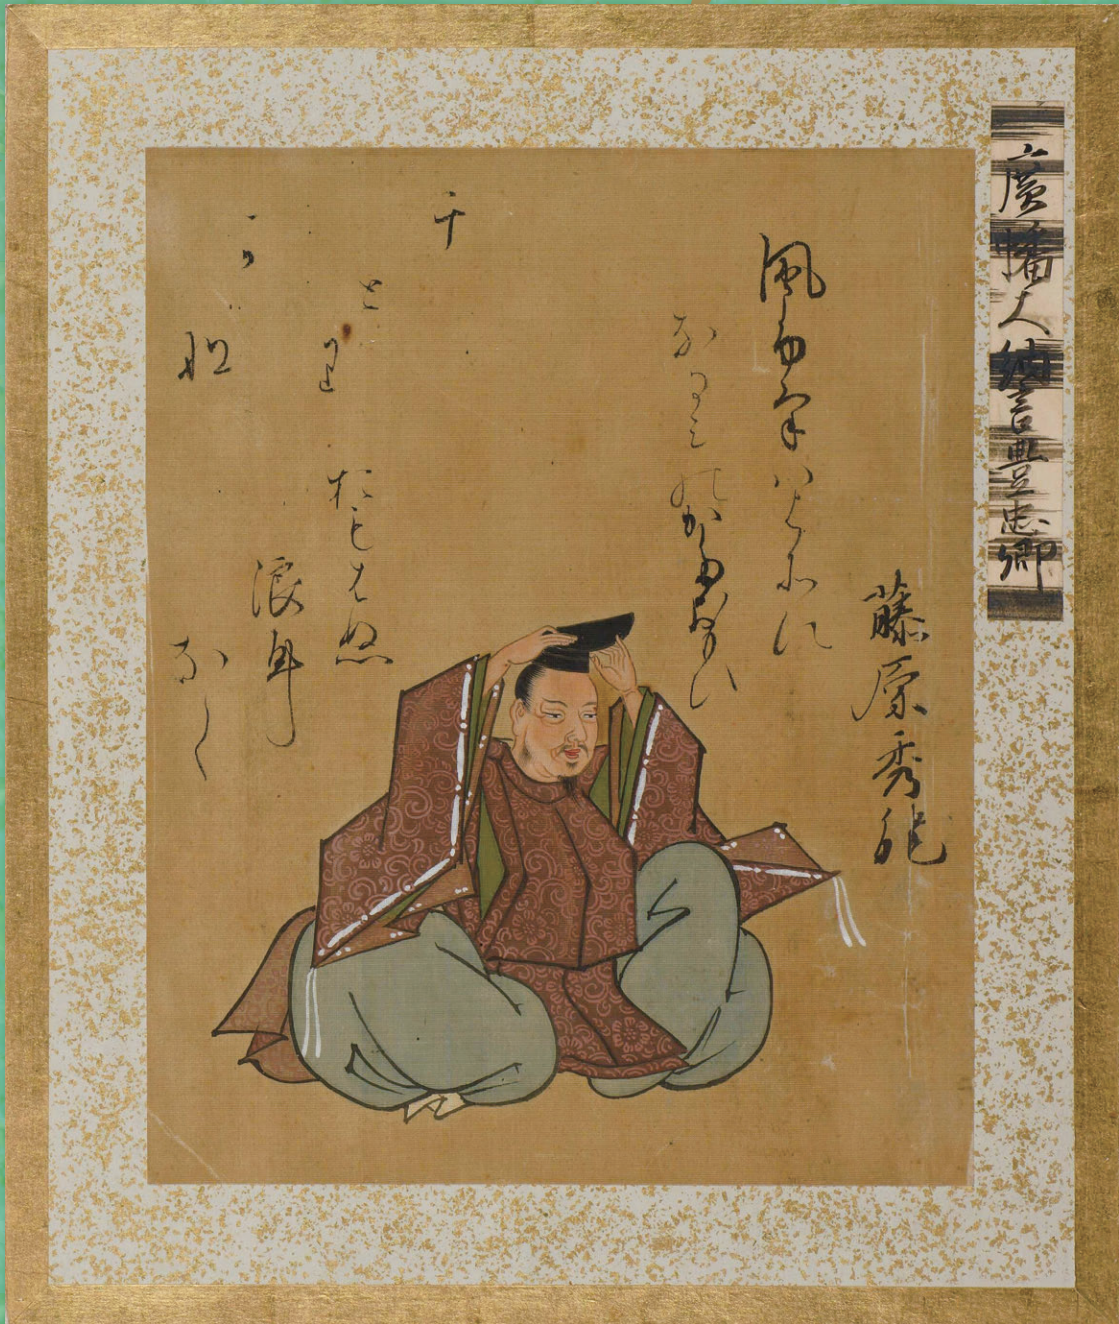 廣幡大納言豊忠卿
藤原秀能
風ふけハよそに
なるみのかたおもひ
おもはぬ
浪に
なく
千
とり
かな